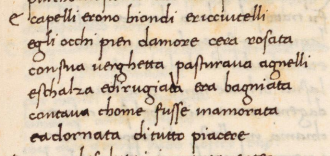 E capelli erono biondi ericciutelli
egli occhi pien damore cera rosata
consua verghetta pasturava agnelli
eschalza edirugiada era bagniata
contava chome fusse inamorata
eadornata ditutto piacere